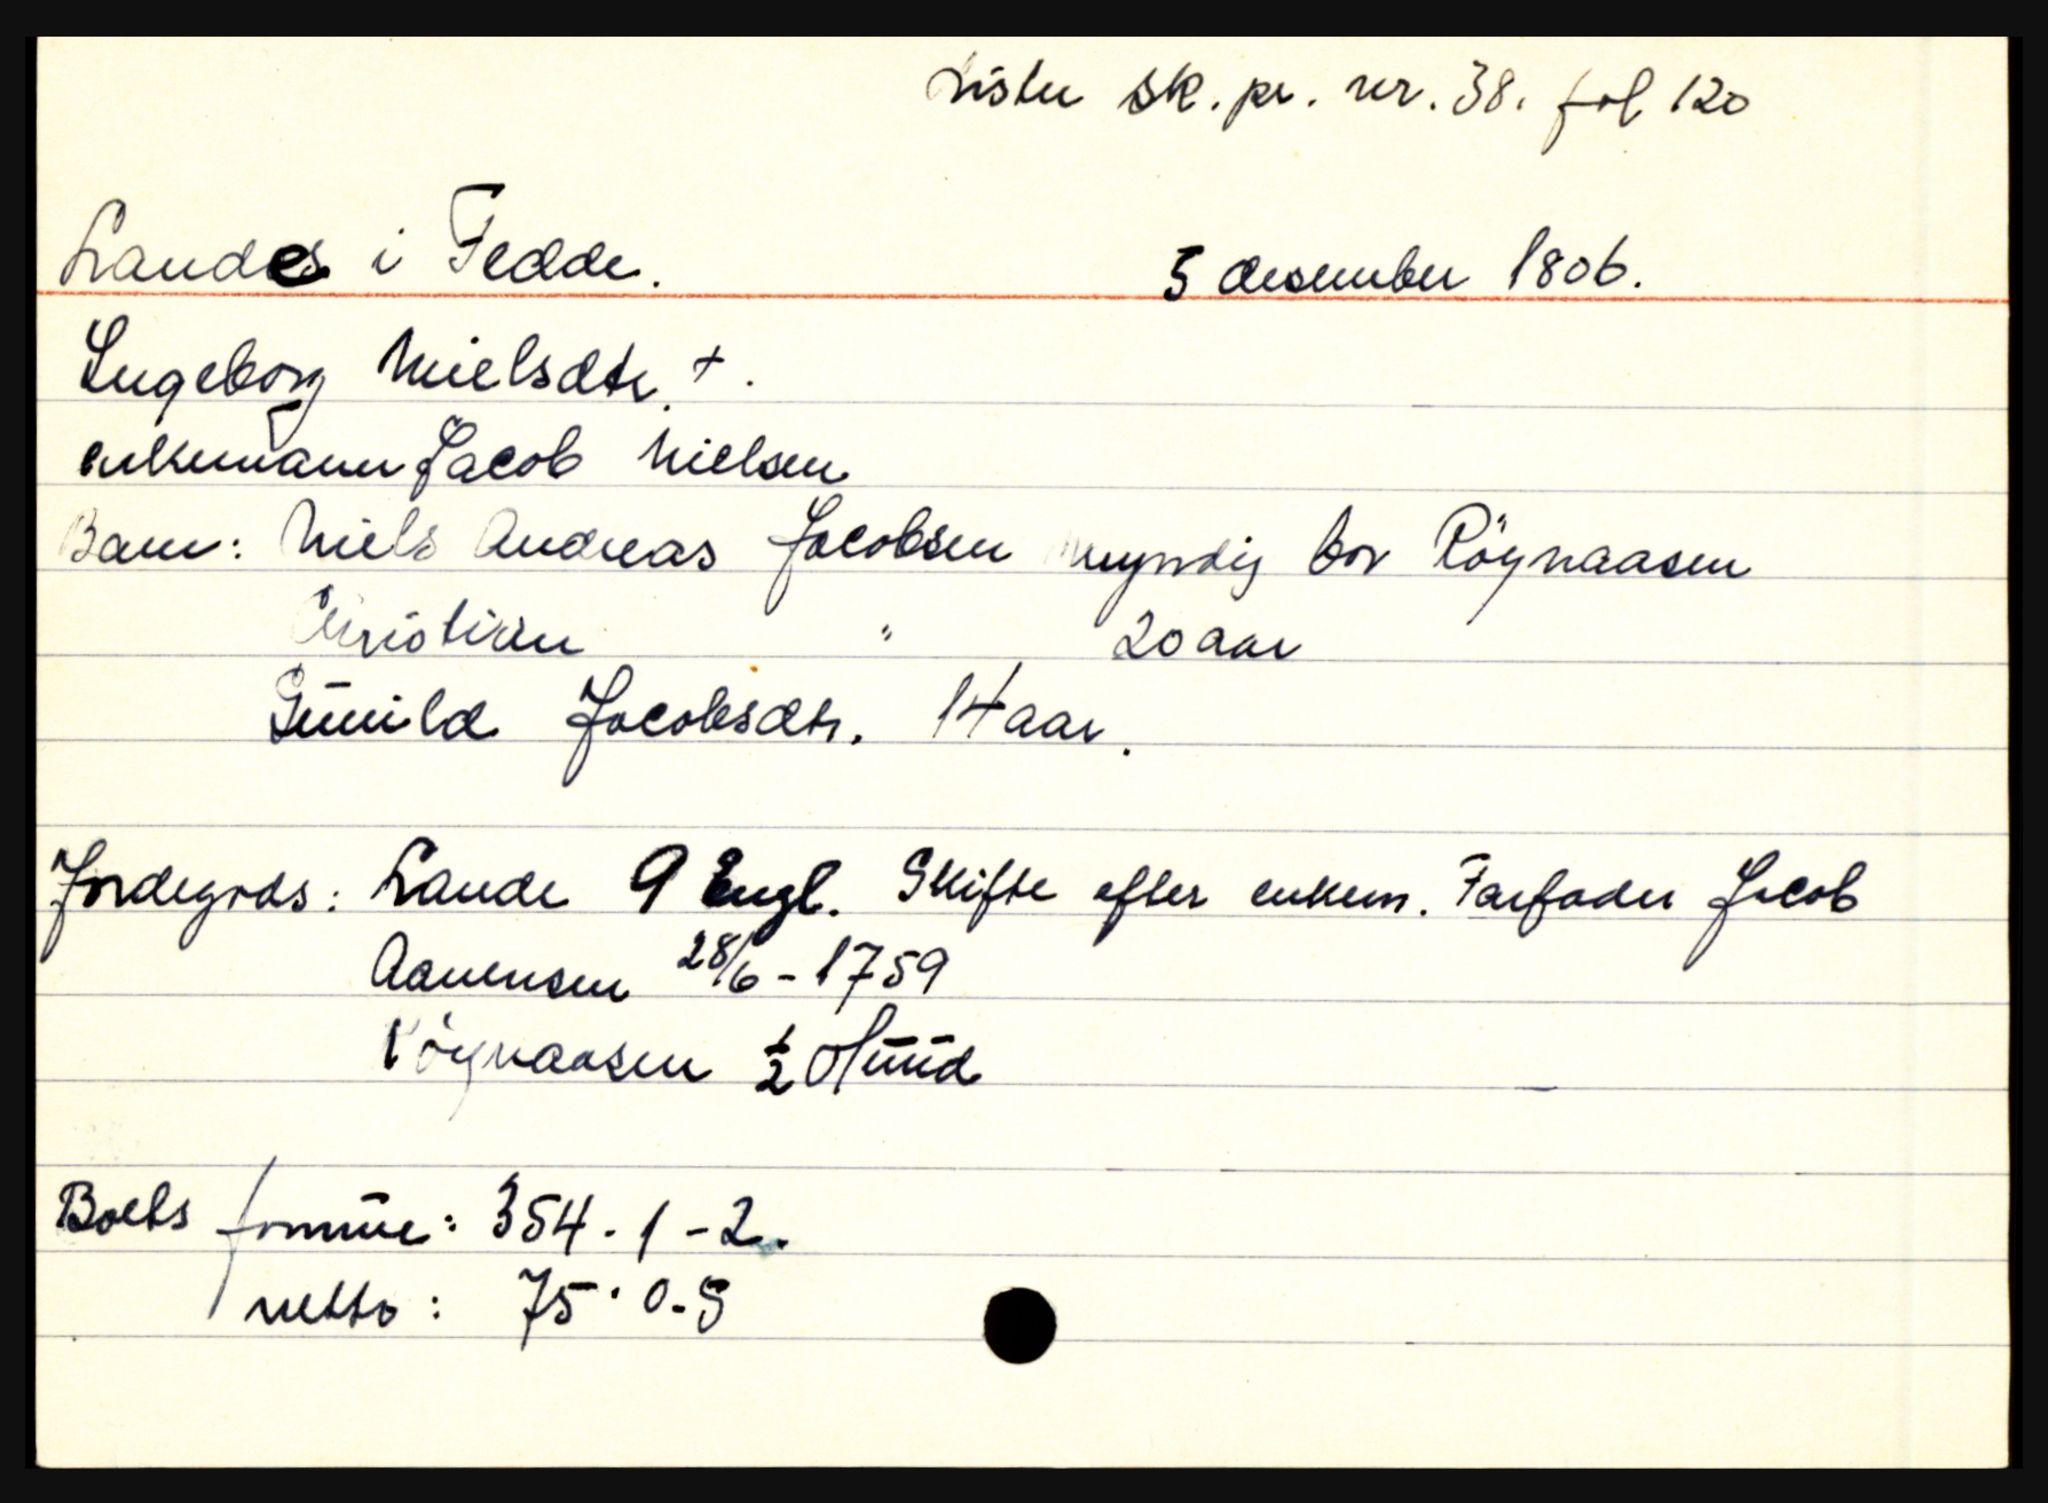 Lister sk. pr. nr. 38. fol 120
Lande i Fedde. 5 desember 1806.
Ingeborg Nielsdtr. +.
enkemann Jacob Nielsen
Barn: Niels Andreas Jacobsen myndig bor Röynaasen
Christian " 20 aar
Gunild Jacobsdtr. 14 aar.
Jordegods: Lande 9 Engl. Skifte efter enkem. Farfader Jacob
Aanensen 28/6 - 1759
Röynaasen 1/2 Huud
Boets formue: 354 - 1 - 2.
netto: 75 - 0 - 5